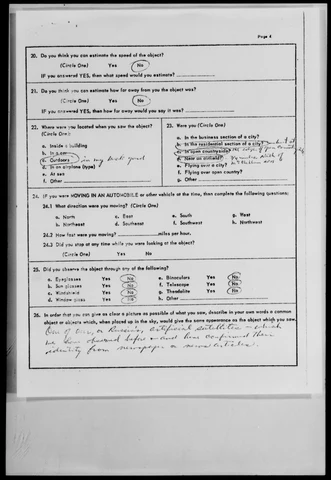 Page 4
20. Do you think you can estimate the speed of the object?
(Circle One) Yes No
IF you answered YES, then what speed would you estimate?
21. Do you think you can estimate how far away from you the object was?
(Circle One) Yes No
IF you answered YES, then how far away would you say it was?
22. Where were you located when you saw the object?
(Circle One)
a. Inside a building
b. In a car
c. Outdoors in my back yard
d. In an airplane (type)
e. At sea
f. Other
23. Were you (Circle One)
a. In the business section of a city?
b. In the residential section of a city?
c. In open countryside?
d. Near an airfield?
e. Flying over a city?
f. Flying over open country?
g. Other
24. IF you were MOVING IN AN AUTOMOBILE or other vehicle at the time, then complete the following questions:
24.1 What direction were you moving? (Circle One)
a. North c. East e. South g. West
b. Northeast d. Southeast f. Southwest h. Northwest
24.2 How fast were you moving? miles per hour.
24.3 Did you stop at any time while you were looking at the object?
(Circle One) Yes No
25. Did you observe the object through any of the following?
a. Eyeglasses Yes No e. Binoculars Yes No
b. Sun glasses Yes No f. Telescope Yes No
c. Windshield Yes No g. Theodolite Yes No
d. Window glass Yes No h. Other
26. In order that you can give as clear a picture as possible of what you saw, describe in your own words a common
object or objects which, when placed up in the sky, would give the same appearance as the object which you saw.
One of our, or Russia's, artificial satellites - which
we have seen before and have confirmed their
identity from newspaper or news articles.